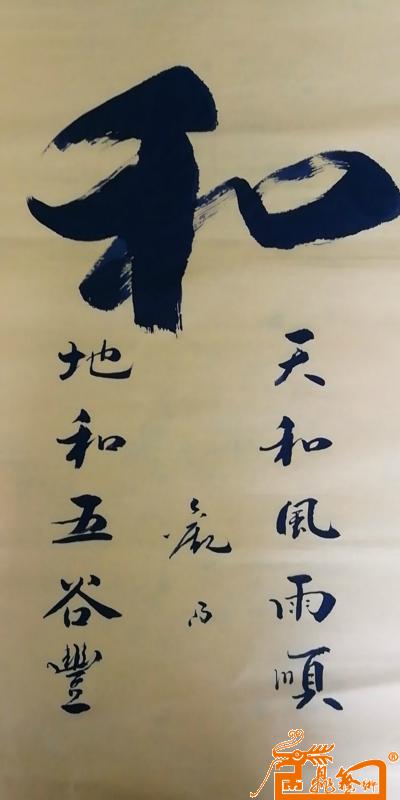 和
天和風雨順
地和五谷豐